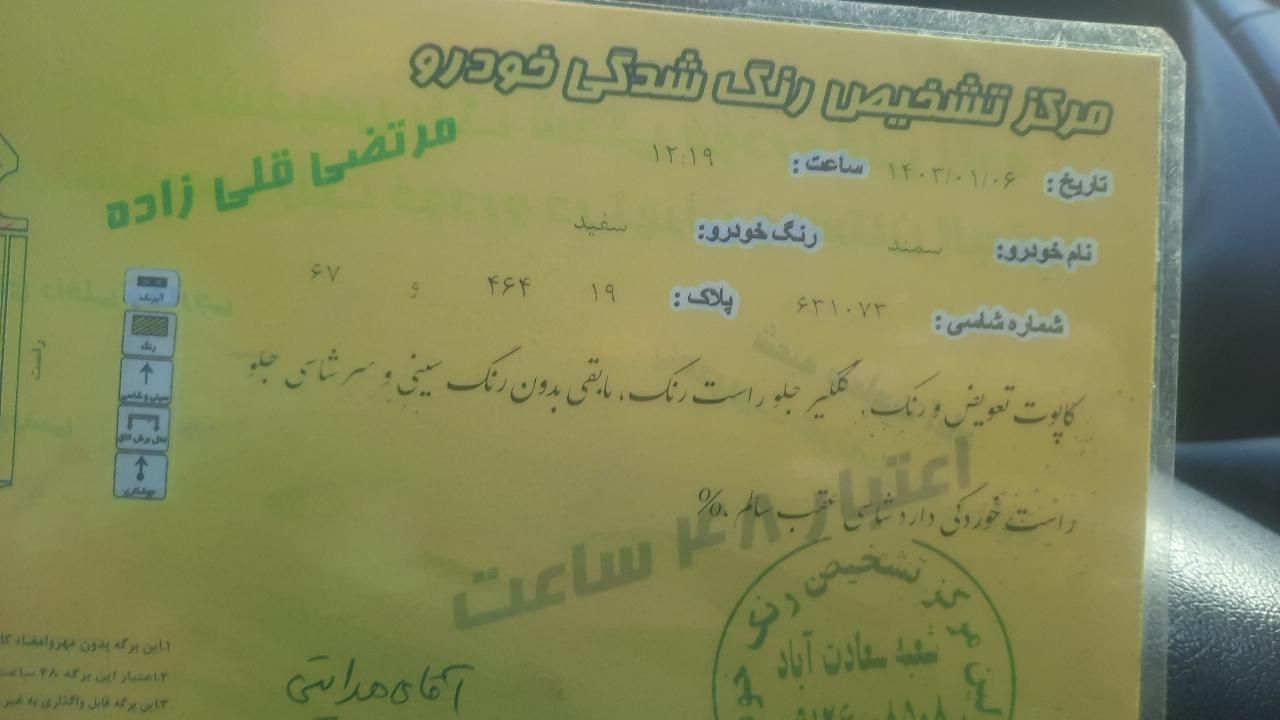 مرکز تشخیص رنگ شدگی خودرو
مرتضی قلی زاده
تاریخ: ۱۴۰۳/۰۱/۰۶ ساعت: ۱۲:۱۹
نام خودرو: سمند رنگ خودرو: سفید
شماره شاسی: ۶۳۱۰۷۳ پلاک: ۱۹ ۴۶۴ و ۶۷
کاپوت تعویض و رنگ. گلگیر جلو راست رنگ. مابقی بدون رنگ سینی و سر شاسی جلو
راست خوردگی دارد شاسی عقب سالم .%
اعتبار ۴۸ ساعت
رنگ
سینی و شاسی
محل برش اتاق
جوشکاری
راست
مرکز تشخیص رنگ
شعبه سعادت آباد
آقای هدایتی
۱.این برگه بدون مهر و امضاء
۲.اعتبار این برگه ۴۸ ساعت
۳.این برگه قابل واگذاری به غیر